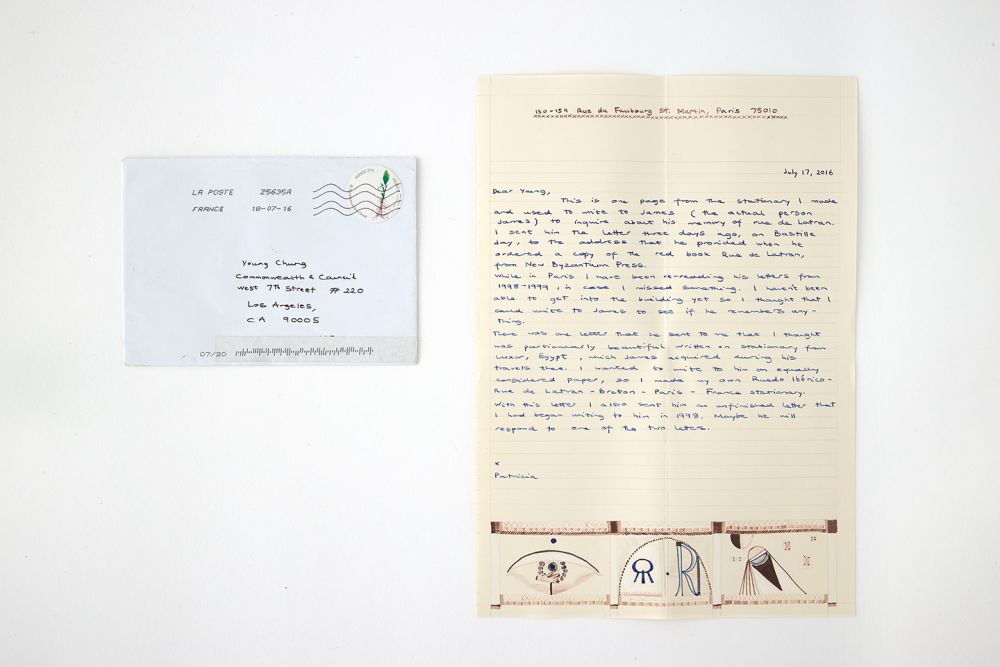 LA POSTE 25635A
FRANCE 18-07-16
Young Chung
Commonwealth & Council
West 7th Street #220
Los Angeles,
CA 90005
07/20
150-154 Rue du Faubourg St. Martin, Paris 75010
July 17, 2016
Dear Young,
This is one page from the stationary I made
and used to write to James (the actual person
James) to inquire about his memory of rue de Latran.
I sent him the letter three days ago, on Bastille
day, to the address that he provided when he
ordered a copy of the red book Rue de Latran,
from New Byzantium Press.
While in Paris I have been re-reading his letters from
1998-1999, in case I missed something. I haven't been
able to get into the building yet so I thought that I
could write to James to see if he remembers any-
thing.
There was one letter that he sent to me that I thought
was particularly beautiful written on stationary from
Luxor, Egypt, which James acquired during his
travels there. I wanted to write to him on equally
considered paper, so I made my own Ruedo Ibérico-
Rue de Latran-Breton-Paris-France stationary.
With this letter I also sent him an unfinished letter that
I had began writing to him in 1999. Maybe he will
respond to one of the two letters.
x
Patricia
R